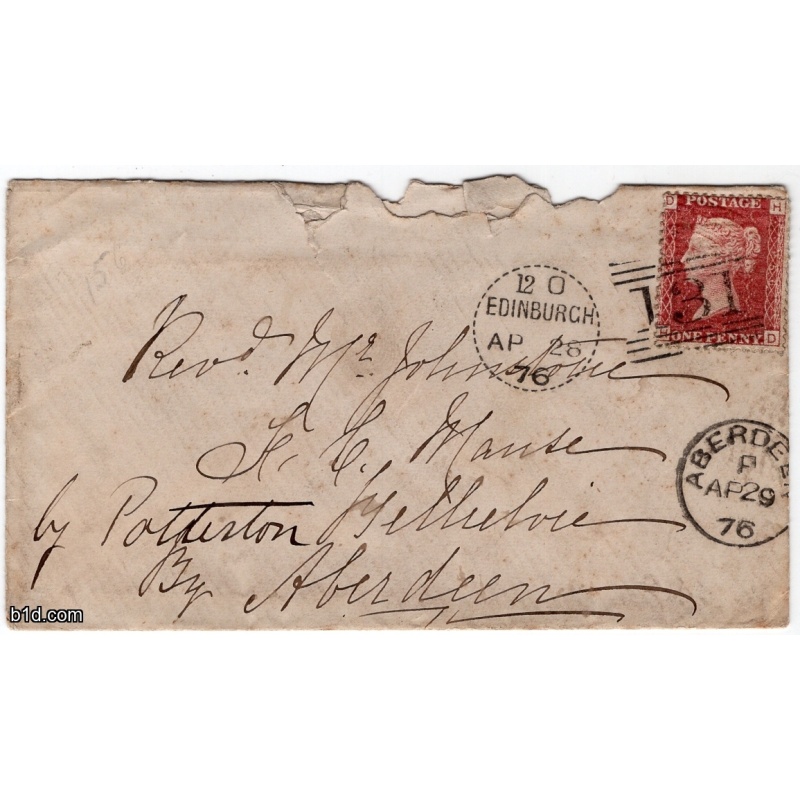 D POSTAGE H
131
H ONE PENNY D
12 O
EDINBURGH
AP 28
76
Revd. Mr. Johnstone
F. C. Manse
by Potterston Belhelvie
By Aberdeen
ABERDEEN
P
AP29
76
b1d.com